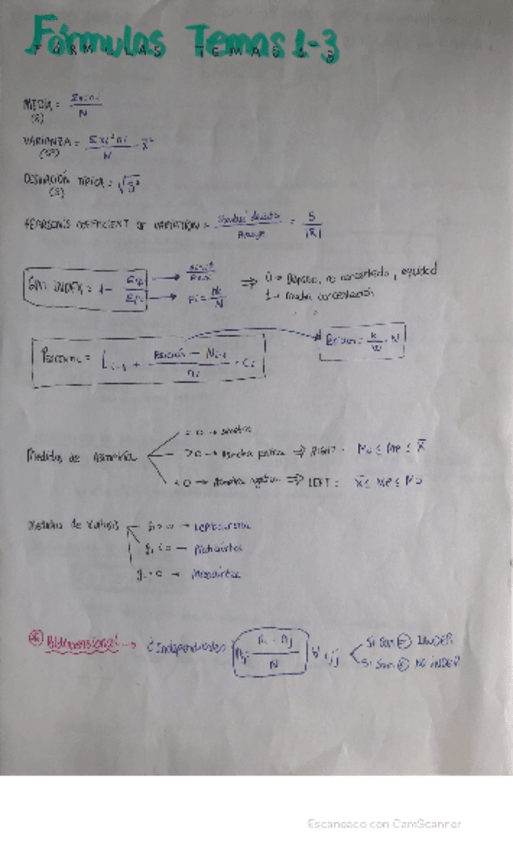 Fórmulas Temas 1-3
FÓRMULAS TEMAS 1-3
MEDIA = Σxini / N
(x̄)
VARIANZA = Σxi²ni / N - x̄²
(S²)
DESVIACIÓN TÍPICA = √S²
(S)
PEARSON'S COEFFICIENT OF VARIATION = Standard deviation / Average = S / |x̄|
GINI INDEX = 1 - Σqi / Σpi
pi = Ni / N
⇒ 0 → no concentrado, equidad
1 → concentración
PERCENTIL = Li-1 + Posición - Ni-1 / ni · Ci
Posición = k / 100 · N
Medidas de Asimetría
= 0 → simétrica
> 0 → Asimetría positiva ⇒ RIGHT: Mo ≤ Me ≤ x̄
< 0 → Asimetría negativa ⇒ LEFT: x̄ ≤ Me ≤ Mo
Medidas de Curtosis
> 0 → Leptocúrtica
< 0 → Platicúrtica
= 0 → Mesocúrtica
Bidimensional → ¿Independientes? nij = ni · nj / N ∀ i,j
Si son = INDEP.
Si son ≠ NO INDEP
Escaneado con CamScanner